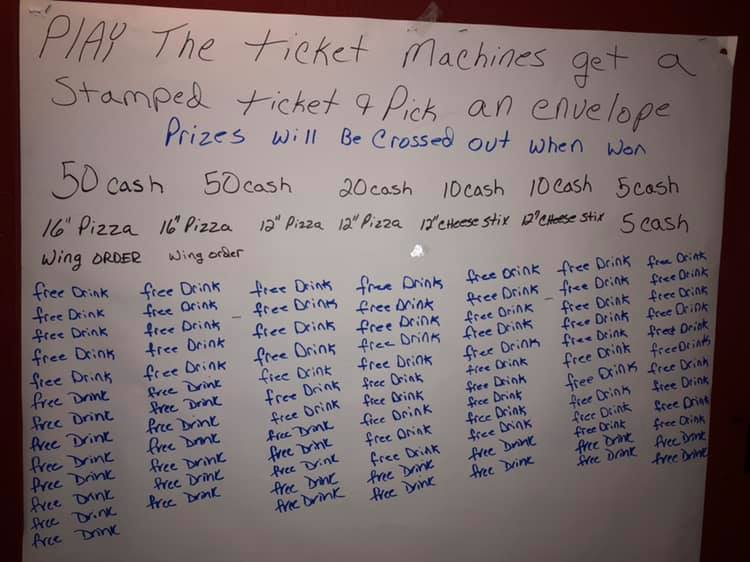 PLAY The ticket Machines get a
Stamped ticket & Pick an envelope
Prizes will Be Crossed out when won
50 cash 50 cash 20 cash 10 cash 10 cash 5 cash
16" Pizza 16" Pizza 12" Pizza 12" Pizza 12" CHeese Stix 12" CHeese Stix 5 cash
Wing ORDER Wing order
free Drink free Drink free Drink free Drink free Drink free Drink free Drink
free Drink free Drink free Drink free Drink free Drink free Drink free Drink
free Drink free Drink free Drink free Drink free Drink free Drink free Drink
free Drink free Drink free Drink free Drink free Drink free Drink free Drink
free Drink free Drink free Drink free Drink free Drink free Drink free Drink
free Drink free Drink free Drink free Drink free Drink free Drink free Drinks
free Drink free Drink free Drink free Drink free Drink free Drink free Drink
free Drink free Drink free Drink free Drink free Drink free Drink free Drink
free Drink free Drink free Drink free Drink free Drink free Drink free Drink
free Drink free Drink free Drink free Drink free Drink free Drink free Drink
free Drink free Drink free Drink free Drink free Drink free Drink free Drink
free Drink free Drink free Drink free Drink free Drink free Drink free Drink
free Drink